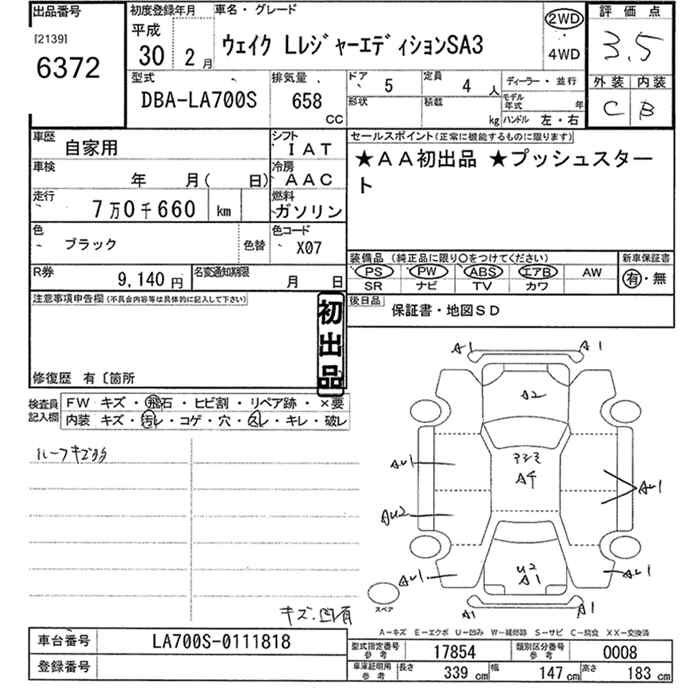 出品番号
[2139]
6372
初度登録年月
平成
30 2 月
車名・グレード
ウェイク LレジャーエディションSA3
2WD
4WD
評価点
3.5
外装 内装
C B
型式
DBA-LA700S
排気量
658
CC
ドア
5
形状
定員
4 人
積載
kg
ディーラー・並行
モデル年式 年
ハンドル 左・右
車歴
自家用
シフト
IAT
車検
年 月( 日)
冷房
AAC
走行
7万0千660 km
燃料
ガソリン
色
ブラック
色替
色コード
X07
R券
9,140 円
名変通知期限
月 日
セールスポイント(正常に機能するものに限ります)
★AA初出品 ★プッシュスタート
装備品(純正品に限り○をつけてください)
PS PW ABS エアB AW
SR ナビ TV カワ
新車保証書
有・無
後日品
保証書・地図SD
注意事項申告欄(不具合内容等は具体的に記入して下さい)
初出品
修復歴 有〔箇所
検査員記入欄
FW キズ・飛石・ヒビ割・リペア跡・×要
内装 キズ・汚れ・コゲ・穴・スレ・キレ・破レ
ルーフキズ多数
キズ・凹有
A1 A1
A2
アシミ
A4
AU1
AU2
AU1
AU1
AU1
U2
A1
A1 A1
スペア
A-キズ E-エクボ U-凹み W-補修跡 S-サビ C-腐食 XX-交換済
車台番号
LA700S-0111818
登録番号
型式指定番号 参考
17854
類別区分番号 参考
0008
車庫証明用 参考
長さ 339 cm
幅 147 cm
高さ 183 cm